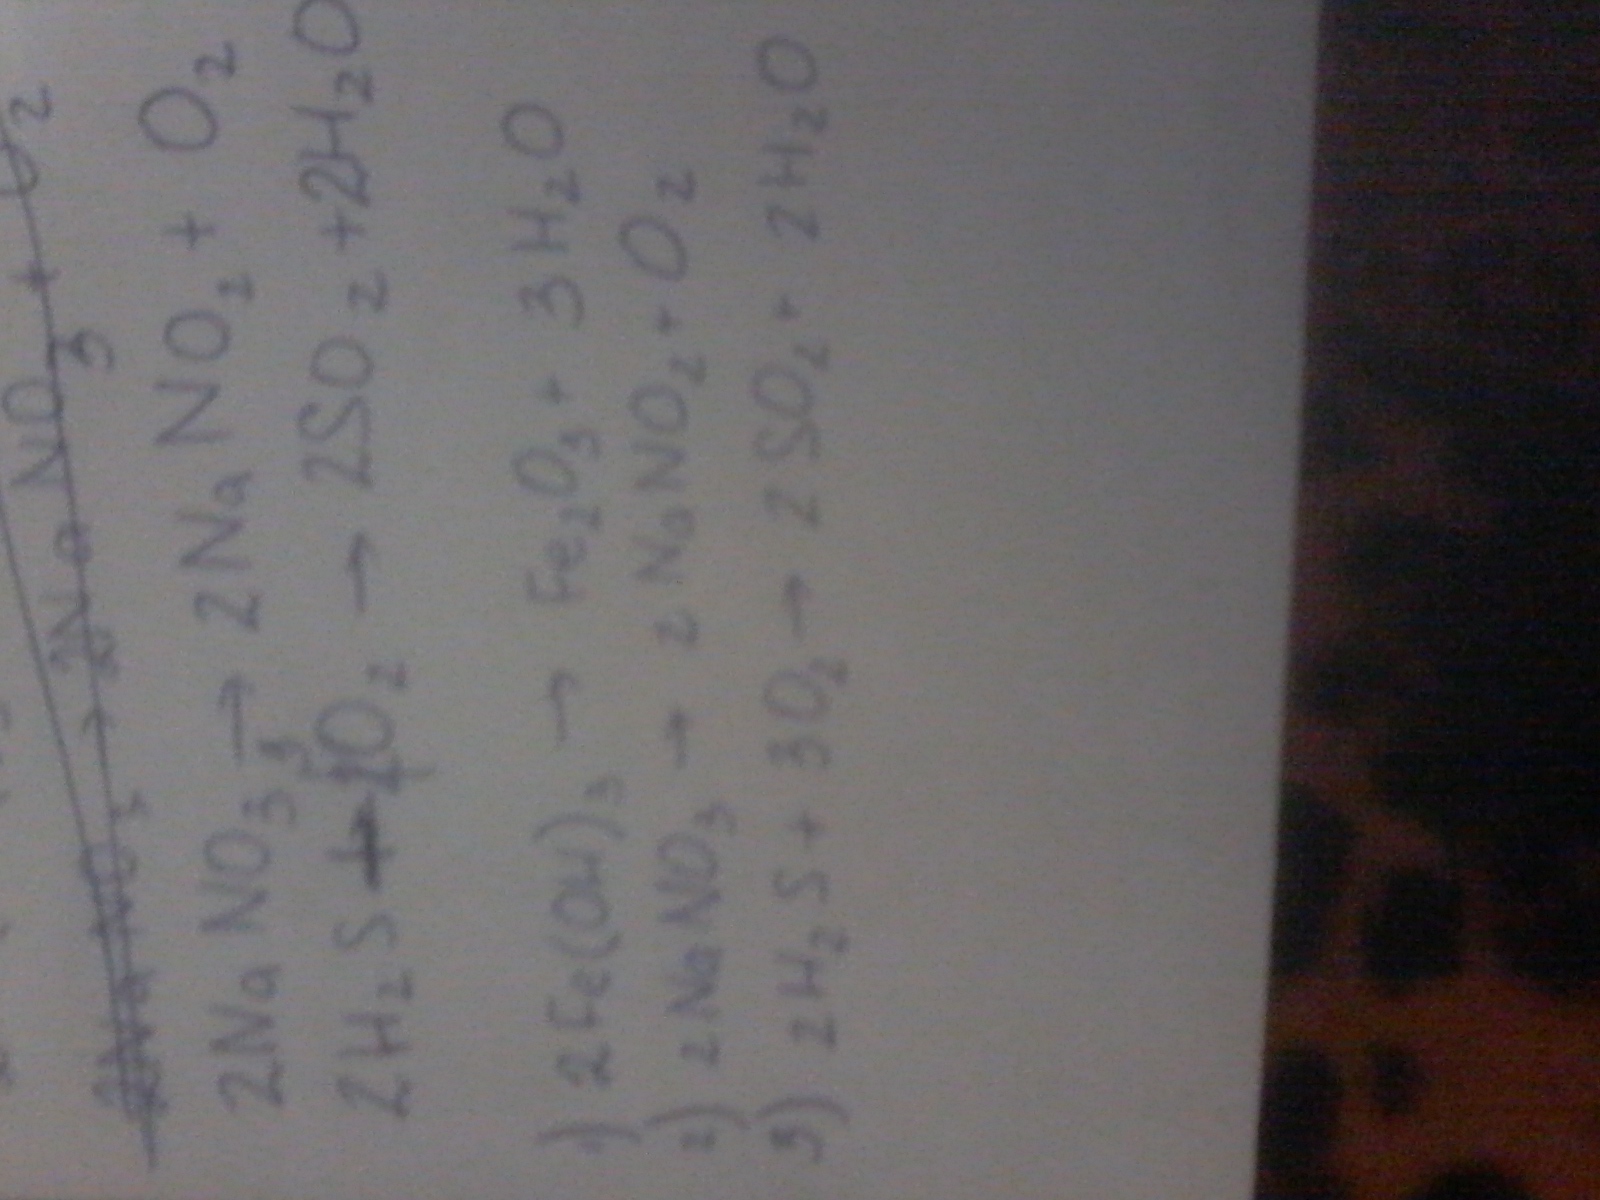 2NaNO₃ → 2NaNO₂ + O₂
2H₂S + O₂ → 2SO₂ + 2H₂O
1) 2Fe(OH)₃ → Fe₂O₃ + 3H₂O
2) 2NaNO₃ → 2NaNO₂ + O₂
3) 2H₂S + 3O₂ → 2SO₂ + 2H₂O